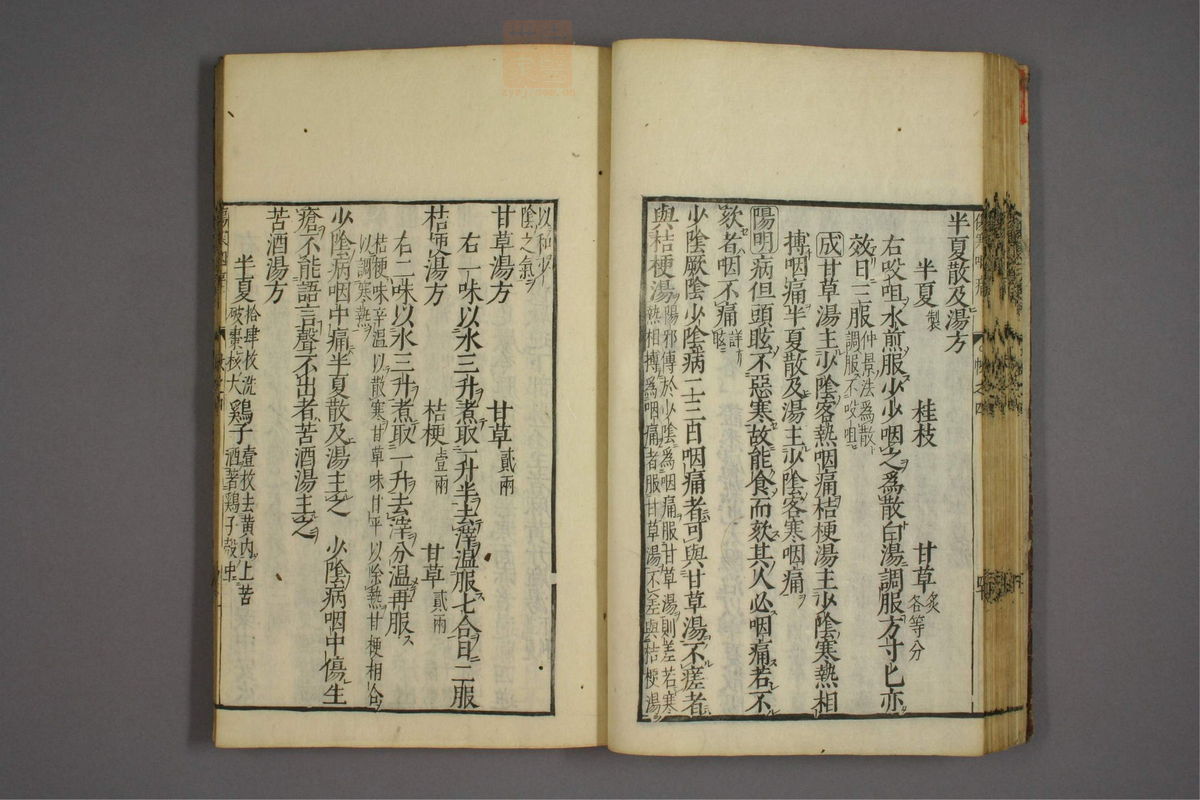 半夏散及湯方
半夏製　桂枝　甘草炙各等分
右㕮咀水煎服少少咽之爲散白湯調服方寸匕亦
效日三服仲景法爲散調服不㕮咀
成甘草湯主少陰客熱咽痛桔梗湯主少陰寒熱相
搏咽痛半夏散及湯主少陰客寒咽痛
陽明病但頭眩不惡寒故能食而欬其人必咽痛若不
欬者咽不痛詳前眩
少陰厥陰少陰病二三日咽痛者可與甘草湯不瘥者
與桔梗湯陽邪傳於少陰爲咽痛服甘草湯則差若寒熱相搏爲咽痛者服甘草湯不差與桔梗湯
以和少陰之氣
甘草湯方　甘草貳兩
右一味以水三升煮取一升半去滓温服七合日二服
桔梗湯方　桔梗壹兩　甘草貳兩
右二味以水三升煮取一升去滓分温再服
桔梗味辛温以散寒甘草味甘平以除熱甘梗相合以調寒熱
少陰病咽中痛半夏散及湯主之　少陰病咽中傷生
瘡不能語言聲不出者苦酒湯主之
苦酒湯方
半夏拾肆枚洗破棗核大　鷄子壹枚去黄内上苦酒著鷄子殼中